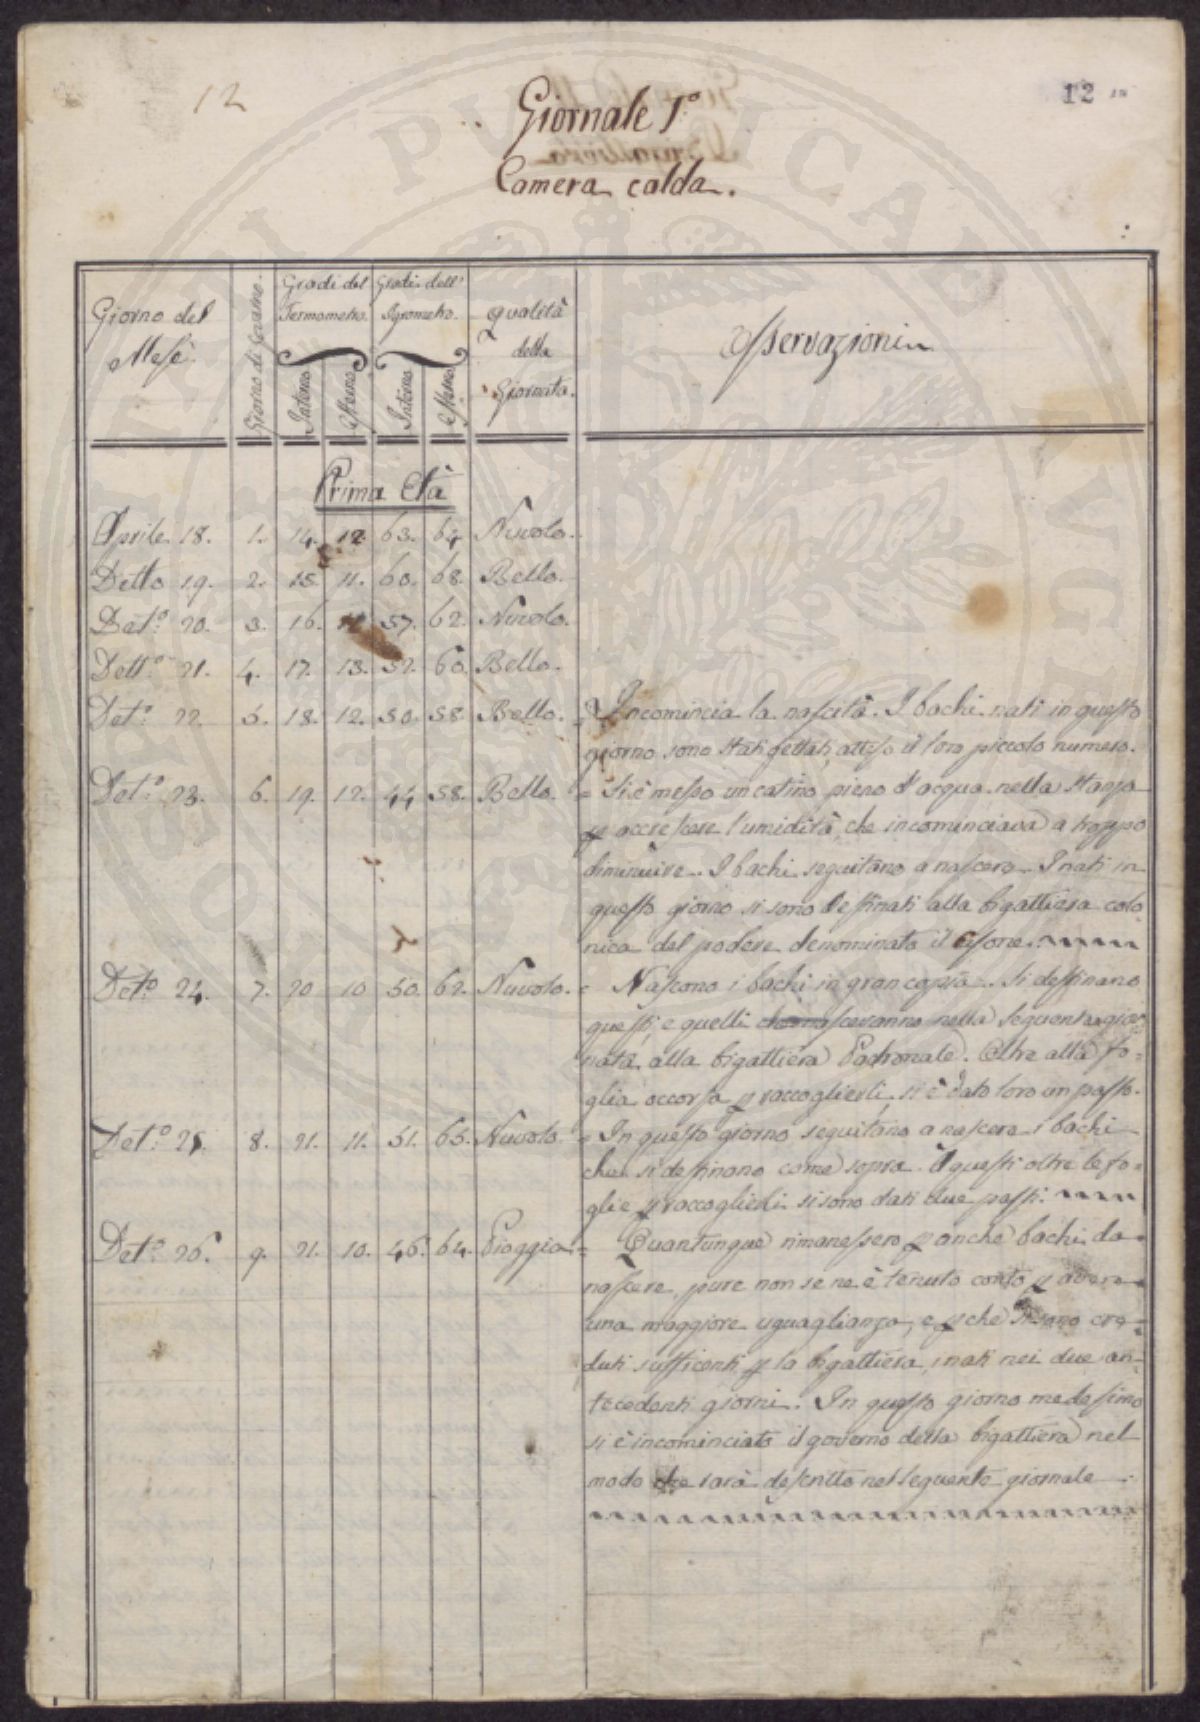 12
12
Giornale 1º
Camera calda.
Giorno del Mese
Giorno di Governo
Gradi del Termometro
Interno
Esterno
Gradi dell' Igrometro
Interno
Esterno
qualità della Giornata
Osservazioni
Prima Età
Aprile 18. 1. 14. 12. 63. 64 Nuvolo.
Detto 19. 2. 15. 11. 60. 68. Bello.
Det.º 20. 3. 16. 11. 57. 62. Nuvolo.
Dett.º 21. 4. 17. 13. 52. 60. Bello.
Det.º 22 5. 18. 12. 50. 58. Bello. = Incomincia la nascita. I bachi nati in questo
giorno sono stati gettati, atteso il loro piccolo numero.
Det.º 23. 6. 19. 12. 44 58. Bello. = Si è messo un catino pieno d'acqua nella stanza
p accrescere l'umidità, che incominciava a troppo
diminuire. I bachi seguitano a nascere. I nati in
questo giorno si sono destinati alla bigattiera colo
nica del podere denominato il
Det.º 24. 7. 20 10 50. 62. Nuvolo. = Nascono i bachi in gran copia. Si destinano
questi, e quelli che nasceranno nella seguente gior
nata alla bigattiera Padronale. Oltre alla fo=
glia occorsa p raccoglierli, si è dato loro un pasto.
Det.º 25. 8. 21. 11. 51. 65. Nuvolo = In questo giorno seguitano a nascere i bachi
che si destinano come sopra. A questi oltre le fo=
glie p raccoglierli si sono dati due pasti.
Det.º 26. 9. 21. 10. 46. 64. Pioggia = Quantunque rimanessero p anche bachi da
nascere, pure non se ne è tenuto conto p avere
una maggiore uguaglianza, e pche si sono cre=
duti sufficenti p la bigattiera, i nati nei due an=
tecedenti giorni. In questo giorno medesimo
si è incominciato il governo della bigattiera nel
modo che sarà descritto nel seguente giornale